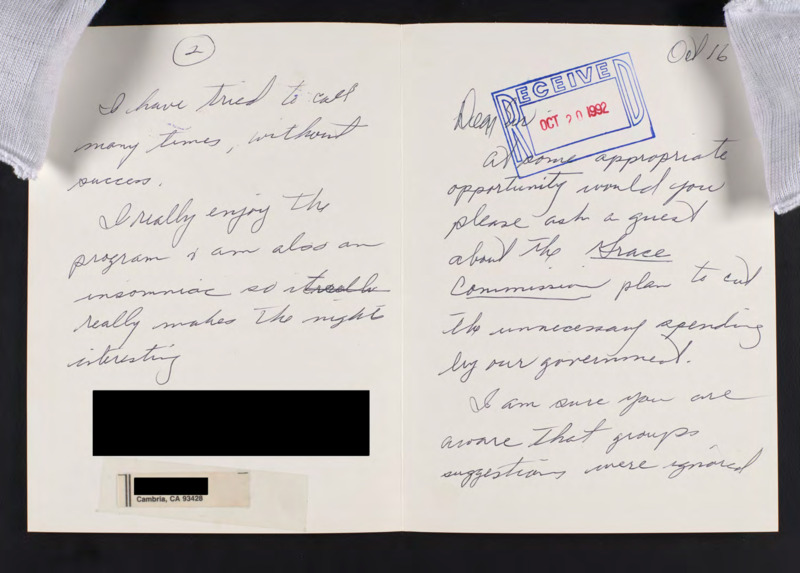 Oct 16
RECEIVED
OCT 20 1992
Dear
At some appropriate
opportunity would you
please ask a guest
about the Grace
Commission plan to cut
the unnecessary spending
by our government.
I am sure you are
aware that groups
suggestions were ignored
2
I have tried to call
many times, without
success.
I really enjoy the
program & am also an
insomniac so it
really makes the nights
interesting
Cambria, CA 93428